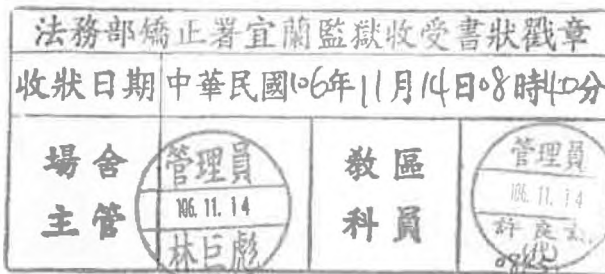 法務部矯正署宜蘭監獄收受書狀戳章
收狀日期 中華民國106年11月14日08時40分
場舍
主管
管理員
106.11.14
林巨彪
教區
科員
管理員
106.11.14
許
(代)